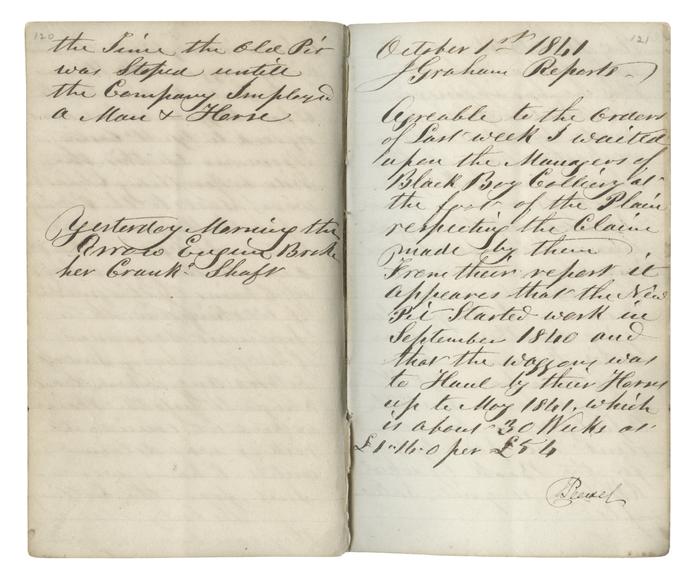 120
the Time the Old Pit
was Stoped untill
the Company Imployed
a Man & Horse
Yesterday Morning the
Arrow Engine Broke
her Crank Shaft
121
October 1st 1841
J Graham Reports
Agreable to the Orders
of Last week I waited
upon the Managers of
Black Boy Colliery at
the foot of the Plain
respecting the Claim
made by them
From their report it
appeares that the New
Pit Started work in
September 1840 and
that the waggons was
to Haul by their Horses
up to May 1841, which
is about 30 Weeks at
£1-16-0 per £54